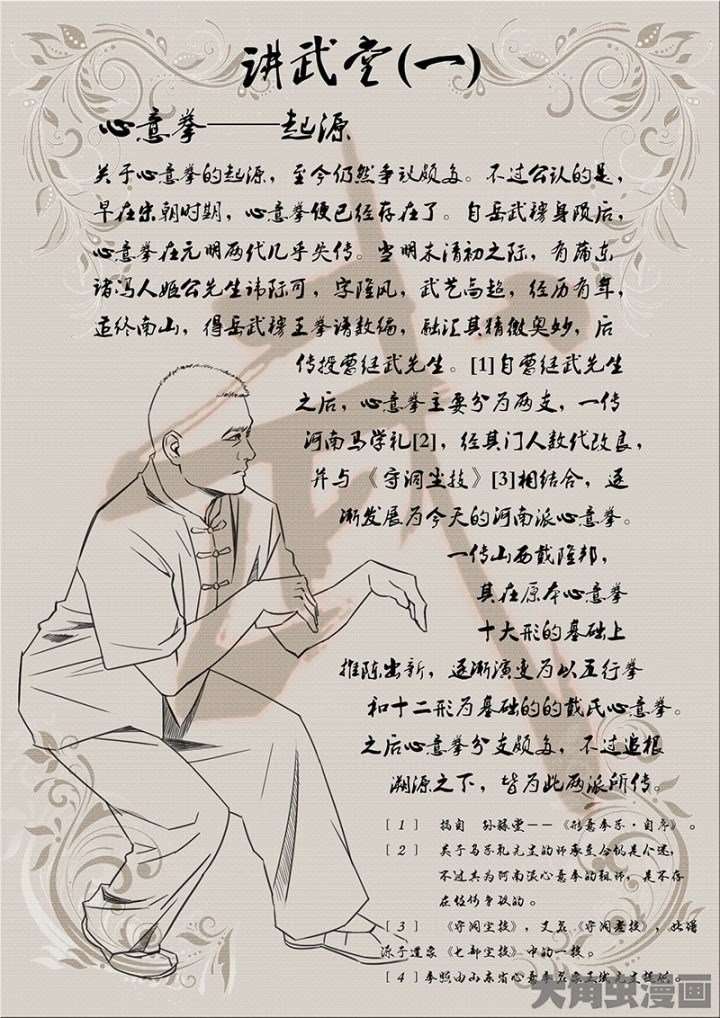 讲武堂(一)
心意拳——起源
关于心意拳的起源，至今仍然争议颇多。不过公认的是，
早在宋朝时期，心意拳便已经存在了。自岳武穆身殒后，
心意拳在元明两代几乎失传。当明末清初之际，有蒲东
诸冯人姬公先生讳际可，字隆风，武艺高超，经历有年，
适终南山，得岳武穆王拳谱数编，融汇其精微奥妙，后
传授曹继武先生。[1]自曹继武先生
之后，心意拳主要分为两支，一传
河南马学礼[2]，经其门人数代改良，
并与《守洞尘技》[3]相结合，逐
渐发展为今天的河南派心意拳。
一传山西戴隆邦，
其在原本心意拳
十大形的基础上
推陈出新，逐渐演变为以五行拳
和十二形为基础的的戴氏心意拳。
之后心意拳分支颇多，不过追根
溯源之下，皆为此两派所传。
[1] 摘自 孙禄堂——《形意拳学·自序》。
[2] 关于马学礼先生的师承至今仍是个迷，
不过其为河南派心意拳的祖师，是不存
在任何争议的。
[3] 《守洞尘技》，又名《守洞老技》，此谱
源于道家《七部尘技》中的一技。
[4]参照由山东省心意拳
大角虫漫画